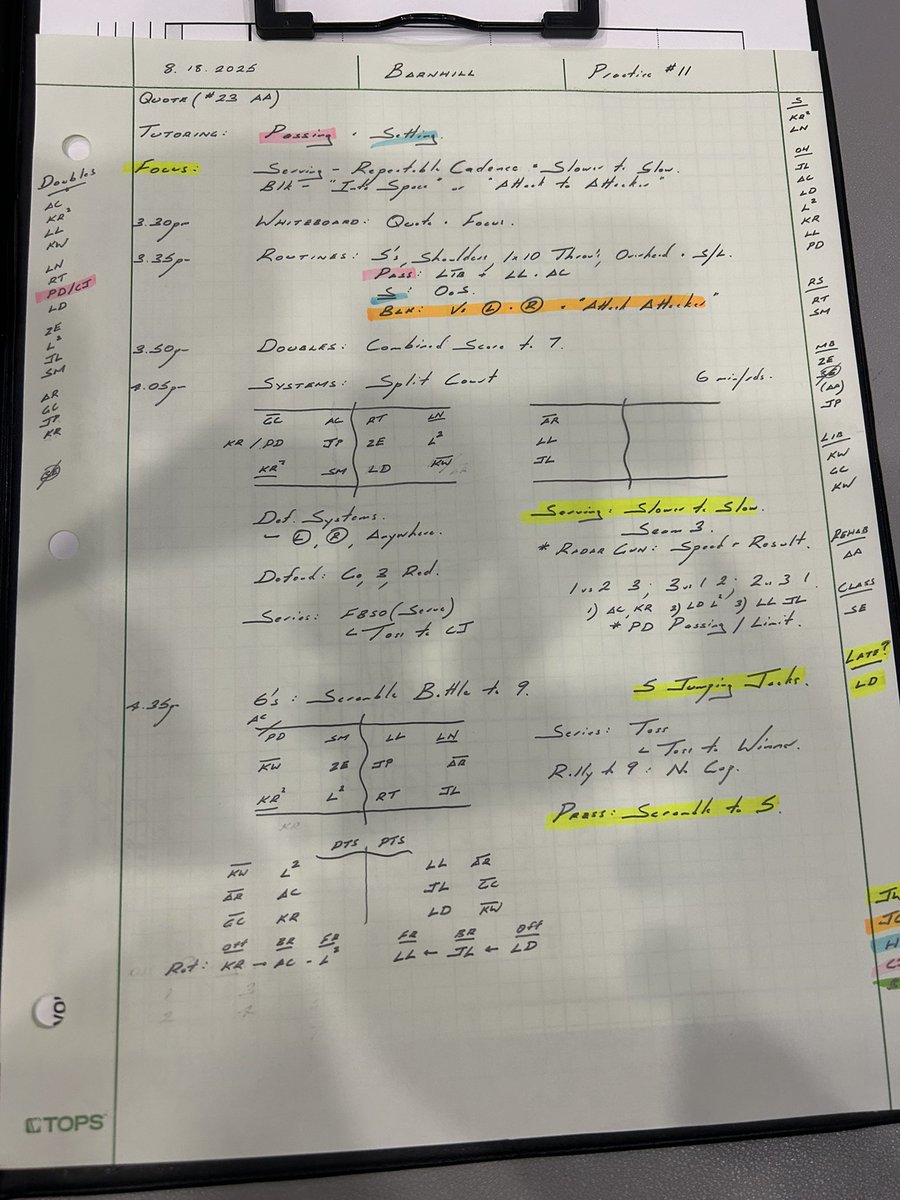 8.18.2025 BARNHILL Practice #11
QUOTE (#23 AA)
TUTORING: Passing · Setting
FOCUS: Serving - Repeatable Cadence · Slower to Slow.
Blk - "Into Space" or "Attack to Attacker"
3.30pm WHITEBOARD: Quote · Focus.
3.35pm ROUTINES: 5's, Shoulders, 1x10 Throw, Overhead · S/L.
PASS: LIB + LL · AC
S: O.O.S.
BLK: Vs L · R · "Attack Attacker"
3.50pm DOUBLES: Combined Score to 7.
4.05pm SYSTEMS: Split Court 6 min/rds.
GC AC RT LN
KR/PD JP ZE L²
KR² SM LD KW
AR
LL
JL
Def. Systems.
- L, R, Anywhere.
Defend: Go, 3, Red.
Series: FBSO (Serve)
Toss to CJ
Serving: Slower to Slow.
Seam 3.
* RADAR GUN: Speed + Result.
1 vs 2 3; 3 vs 1 2; 2 vs 3 1.
1) AC, KR 2) LD L² 3) LL JL
* PD Passing / Limit.
4.35p 6's: Scramble Battle to 9. 5 Jumping Jacks.
AC/PD SM LL LN
KW ZE JP AR
KR² L² RT JL
Series: Toss
Toss to Winner.
Rally to 9: No Cap.
PRESS: Scramble to 5.
PTS PTS
KW L² LL AR
AR AC JL GC
GC KR LD KW
Off BR FR FR BR Off
Rot: KR → AC - L² LL ← JL ← LD
Doubles
AC
KR²
LL
KW
LN
RT
PD/CJ
LD
ZE
L²
JL
SM
AR
GC
JP
KR
SE
S
KR²
LN
OH
JL
AC
LD
L²
KR
LL
PD
RS
RT
SM
MB
ZE
SE
(AA)
JP
LIB
KW
GC
KW
REHAB
AA
CLASS
SE
LATE?
LD
TOPS